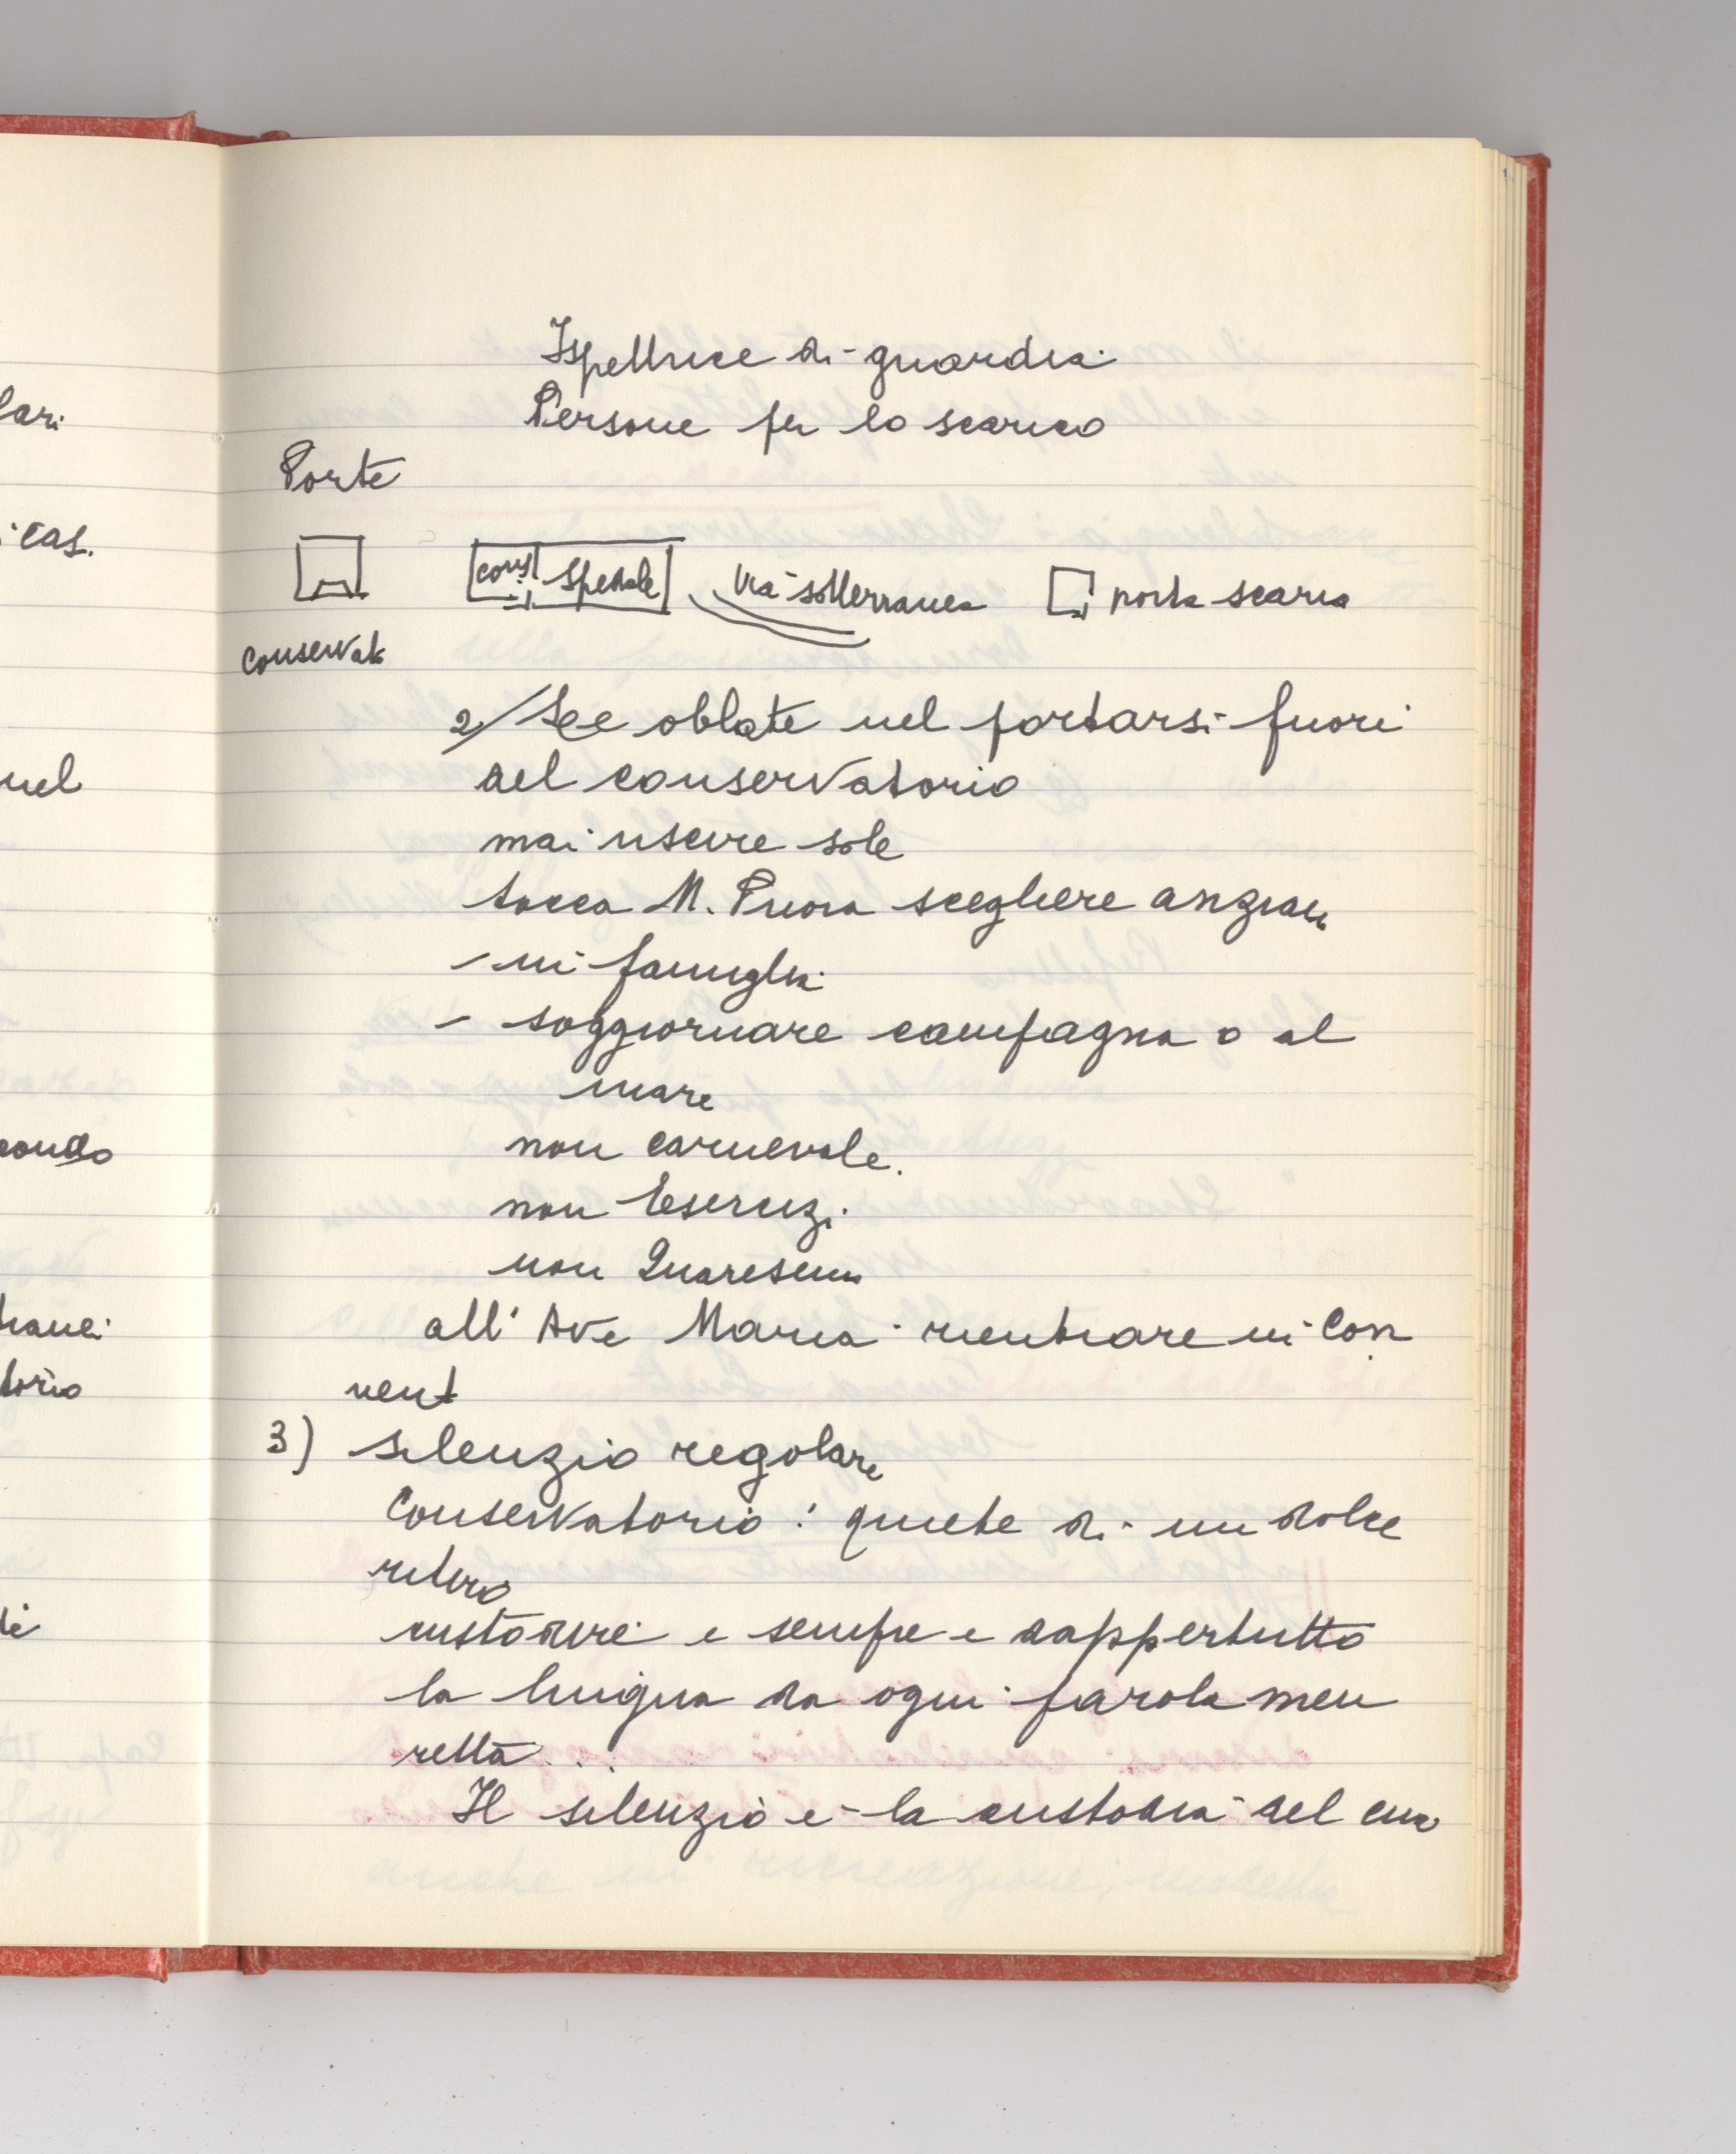 lari
i cas.
nel
condo
tranei
torio
di
Ispettrice di guardia
Persone per lo scarico
Porte
cons. Spedale via sotterranea porta scarico
conservat
2/ Le oblate nel portarsi fuori
del conservatorio
mai uscire sole
tocca M. Priora scegliere anziane
- in famiglia
- soggiornare campagna o al
mare
non carnevale.
non Esercizi
non Quaresima
all' Ave Maria rientrare in Con
vent
3) silenzio regolare
Conservatorio: quiete di un dolce
ritiro
custodire e sempre e dappertutto
la lingua da ogni parola men
retta...
Il silenzio è la custodia del cuo